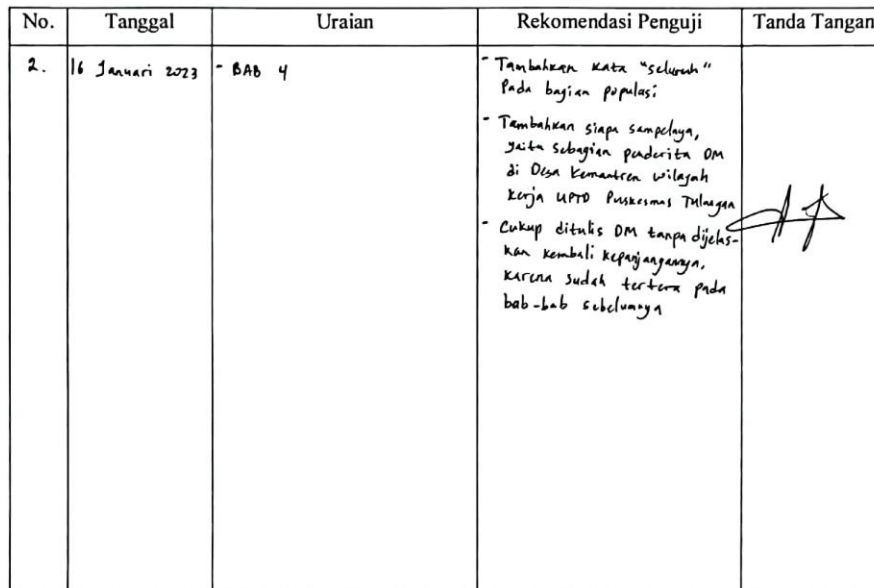 No. Tanggal Uraian Rekomendasi Penguji Tanda Tangan
2. 16 Januari 2023 - BAB 4 - Tambahkan kata "seluruh"
Pada bagian populasi
- Tambahkan siapa sampelnya,
yaitu sebagian penderita DM
di Desa Kemantren wilayah
kerja UPTD Puskesmas Tulangan
- Cukup ditulis DM tanpa dijelas-
kan kembali kepanjangannya,
karena sudah tertera pada
bab-bab sebelumnya